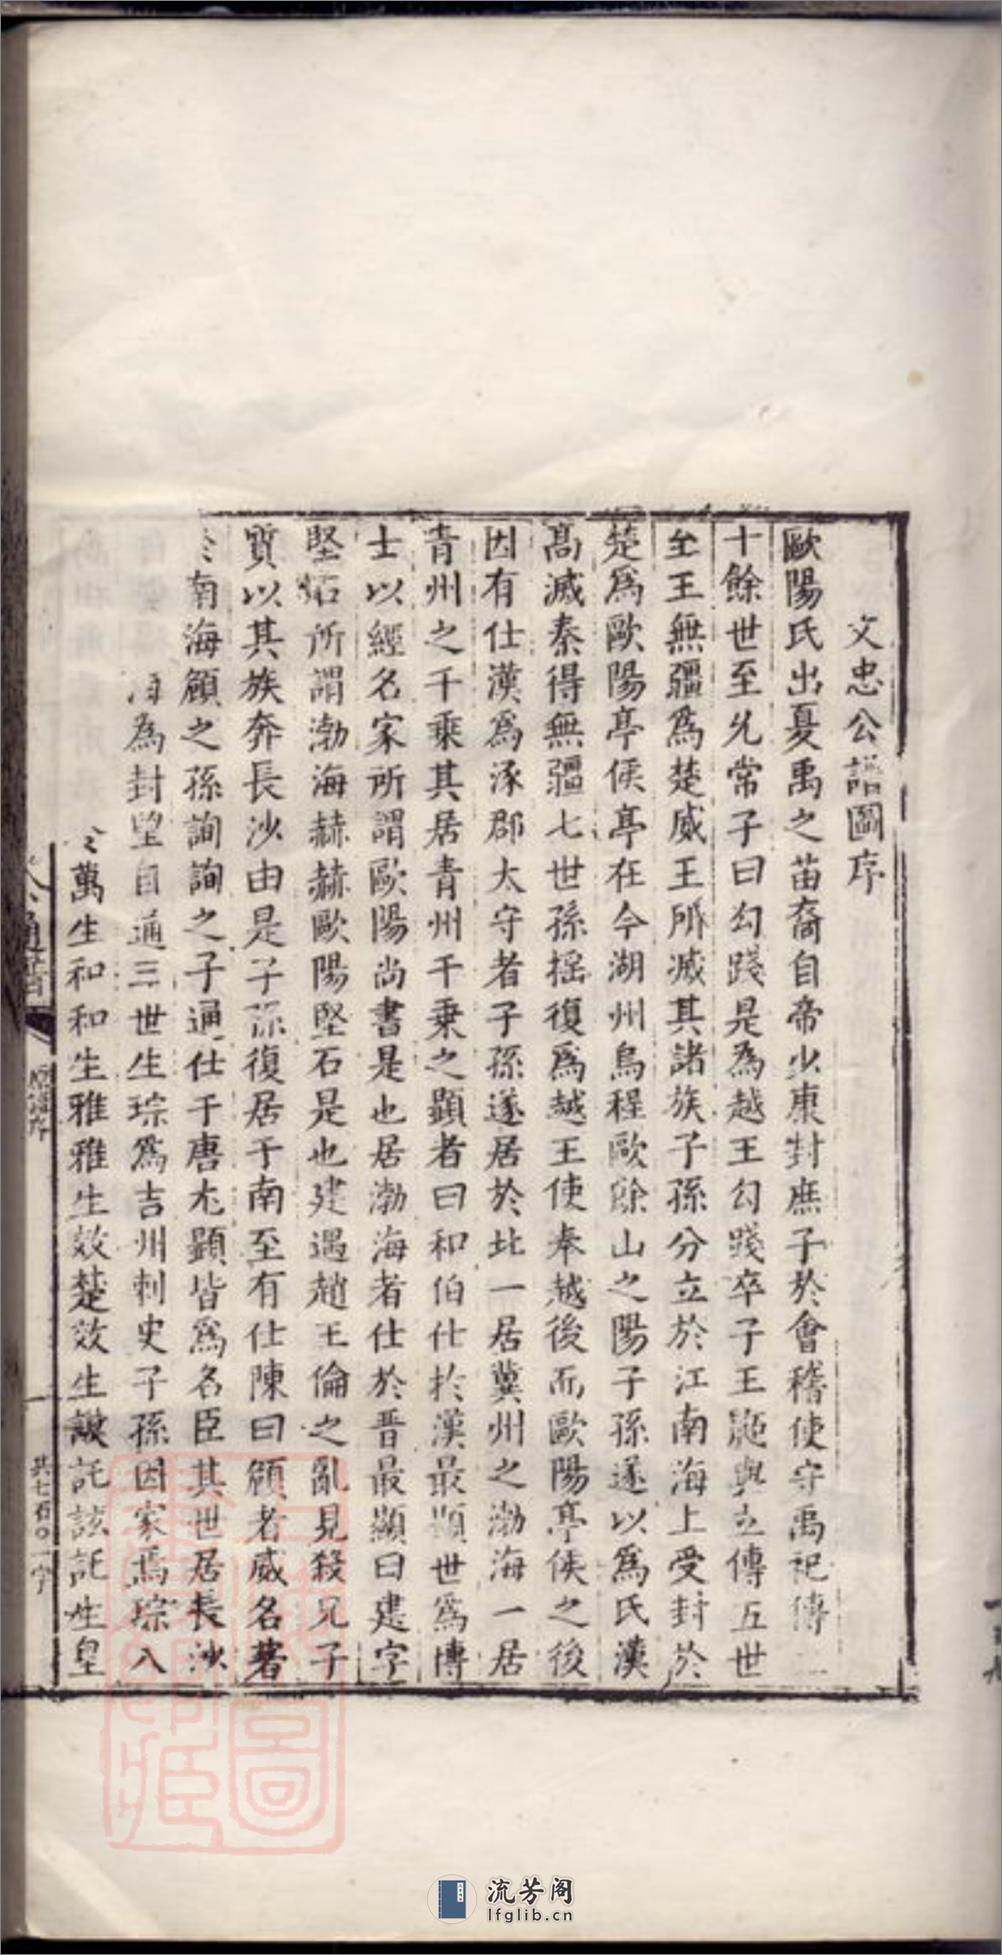 文忠公譜圖序
歐陽氏出夏禹之苗裔自帝少康封庶子於會稽使守禹祀傳二
十餘世至允常子曰勾踐是為越王勾踐卒子王鼫與立傳五世
至王無疆爲楚威王所滅其諸族子孫分立於江南海上受封於
楚爲歐陽亭侯亭在今湖州烏程歐餘山之陽子孫遂以爲氏漢
高滅秦得無疆七世孫揺復爲越王使奉越後而歐陽亭侯之後
因有仕漢爲涿郡太守者子孫遂居於北一居冀州之渤海一居
青州之千乘其居青州千乘之顯者曰和伯仕於漢最顯世爲博
士以經名家所謂歐陽尚書是也居渤海者仕於晋最顯曰建字
堅石所謂渤海赫赫歐陽堅石是也建遇趙王倫之亂見殺兄子
質以其族奔長沙由是子孫復居于南至有仕陳曰頠者威名著
於南海頠之孫詢詢之子通仕于唐尤顯皆爲名臣其世居長沙
為封望自通三世生琮爲吉州刺史子孫因家焉琮八
萬生和和生雅雅生效楚效生謨託該託生皇
通譜
原譜序
一
共七百〇一字
流芳阁
lfglib.cn